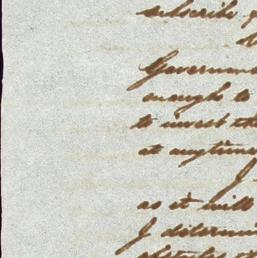 subscribe
Governm
enough to
to invest th
at anytime
I
as it will
I determin